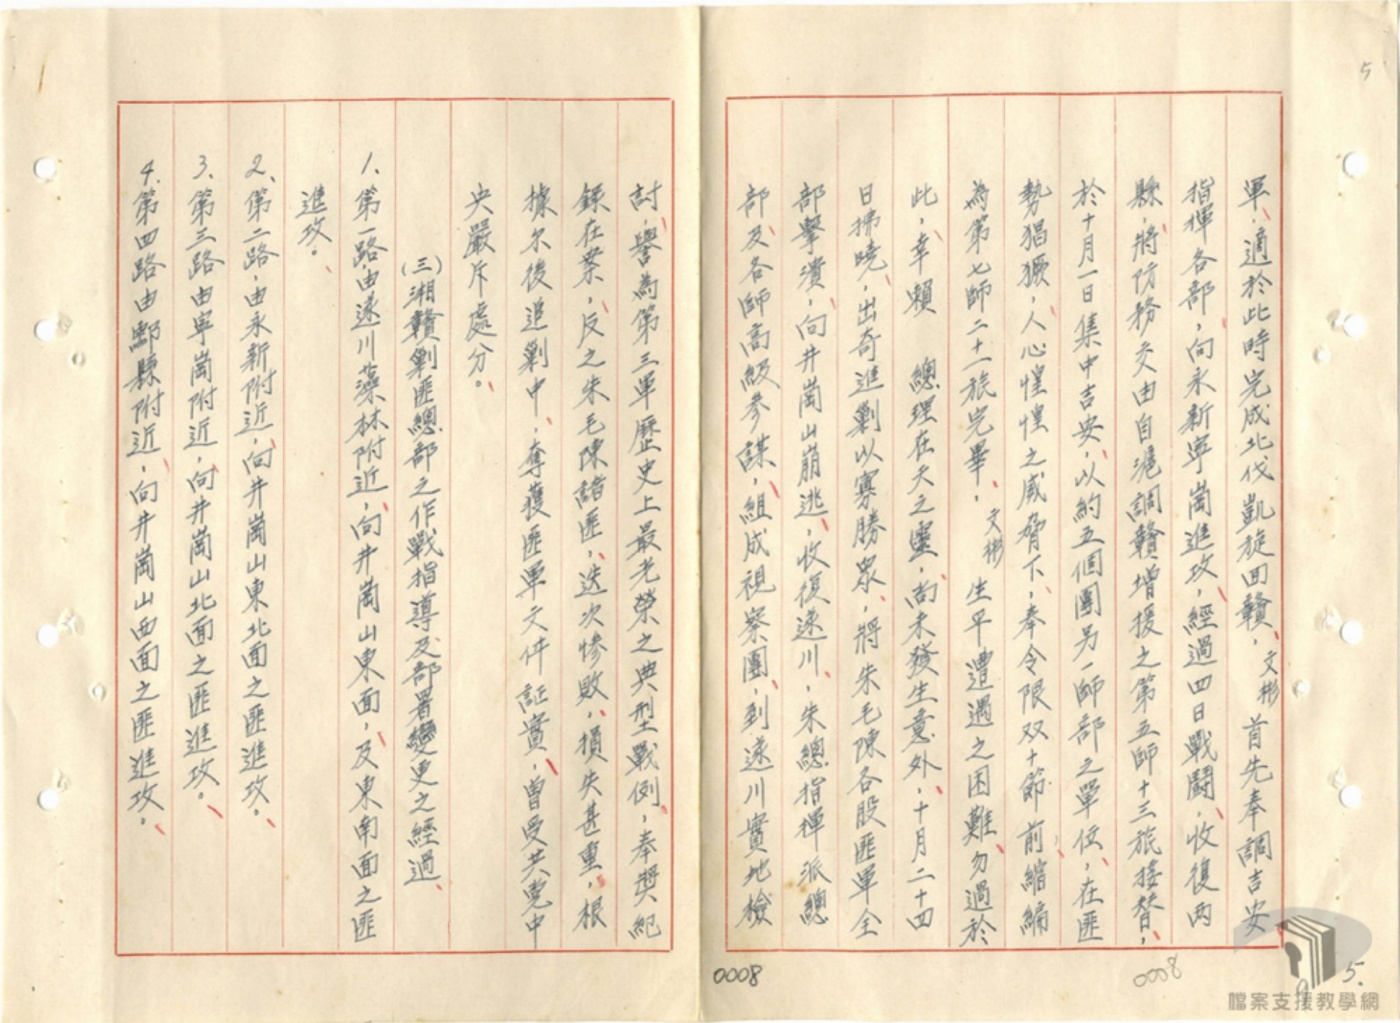 5
軍，適於此時完成北伐凱旋回贛，文彬首先奉調吉安
指揮各部，向永新寧崗進攻，經過四日戰鬪，收復兩
縣，將防務交由自滬調贛增援之第五師十三旅接替，
於十月一日集中吉安，以約五個團另一師部之單位，在匪
勢猖獗，人心惶惶之威脅下，奉令限双十節前縮編
為第七師二十一旅完畢，文彬生平遭遇之困難勿過於
此，幸賴 總理在天之靈，尚未發生意外，十月二十四
日拂曉，出奇進剿以寡勝眾，將朱毛陳各股匪軍全
部擊潰，向井崗山崩逃，收復遂川，朱總指揮派總
部及各師高級參謀，組成視察團，到遂川實地檢
討，譽為第三軍歷史上最光榮之典型戰例，奉獎紀
錄在案，反之朱毛陳諸匪，迭次慘敗，損失甚重，根
據尔後追剿中，奪獲匪軍文件証實，曾受共党中
央嚴斥處分。
(三)湘贛剿匪總部之作戰指導及部署變更之經過
1、第一路，由遂川藻林附近，向井崗山東面，及東南面之匪
進攻。
2、第二路，由永新附近，向井崗山東北面之匪進攻。
3、第三路由寧崗附近，向井崗山北面之匪進攻。
4、第四路由酃縣附近，向井崗山西面之匪進攻。
0008
0008
5.
檔案支援教學網